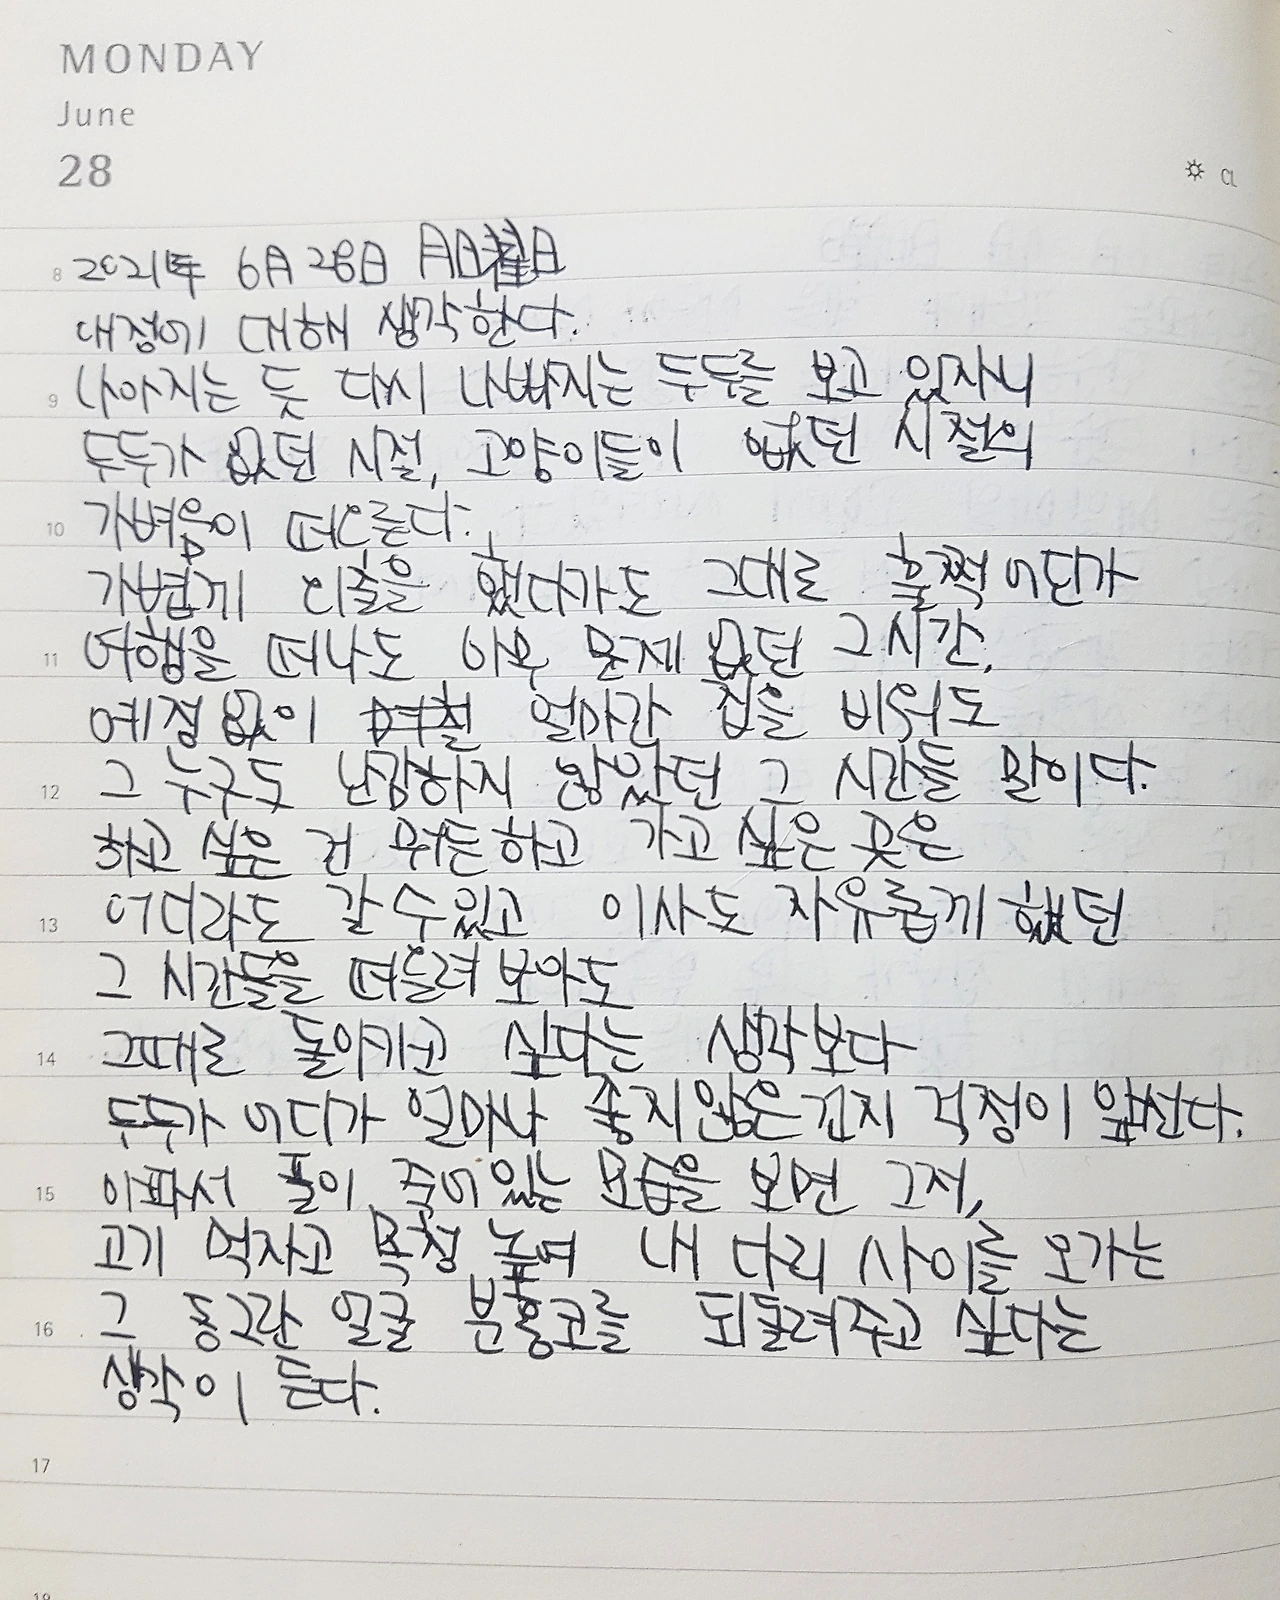 MONDAY
June
28
CL
8 2021年 6月 28日 月日曜日
애정에 대해 생각한다.
9 나아지는 듯 다시 나빠지는 두두를 보고 있자니
두두가 없던 시절, 고양이들이 없던 시절의
10 가벼움이 떠오른다.
가볍게 외출을 했다가도 그대로 훌쩍 어딘가
11 여행을 떠나도 아무 문제 없던 그 시간,
예정없이 며칠 얼마간 집을 비워도
12 그 누구도 난감하지 않았던 그 시간들 말이다.
하고 싶은 건 뭐든 하고 가고 싶은 곳은
13 어디라도 갈 수 있고 이사도 자유롭게 했던
그 시간들을 떠올려 보아도
14 그때로 돌이키고 싶다는 생각보다
두두가 어디가 얼마나 좋지 않은 건지 걱정이 앞선다.
15 아파서 풀이 죽어있는 모습을 보면 그저,
고기 먹자고 목청 높여 내 다리 사이를 오가는
16 그 동그란 얼굴 분홍코를 되돌려주고 싶다는
생각이 든다.
17